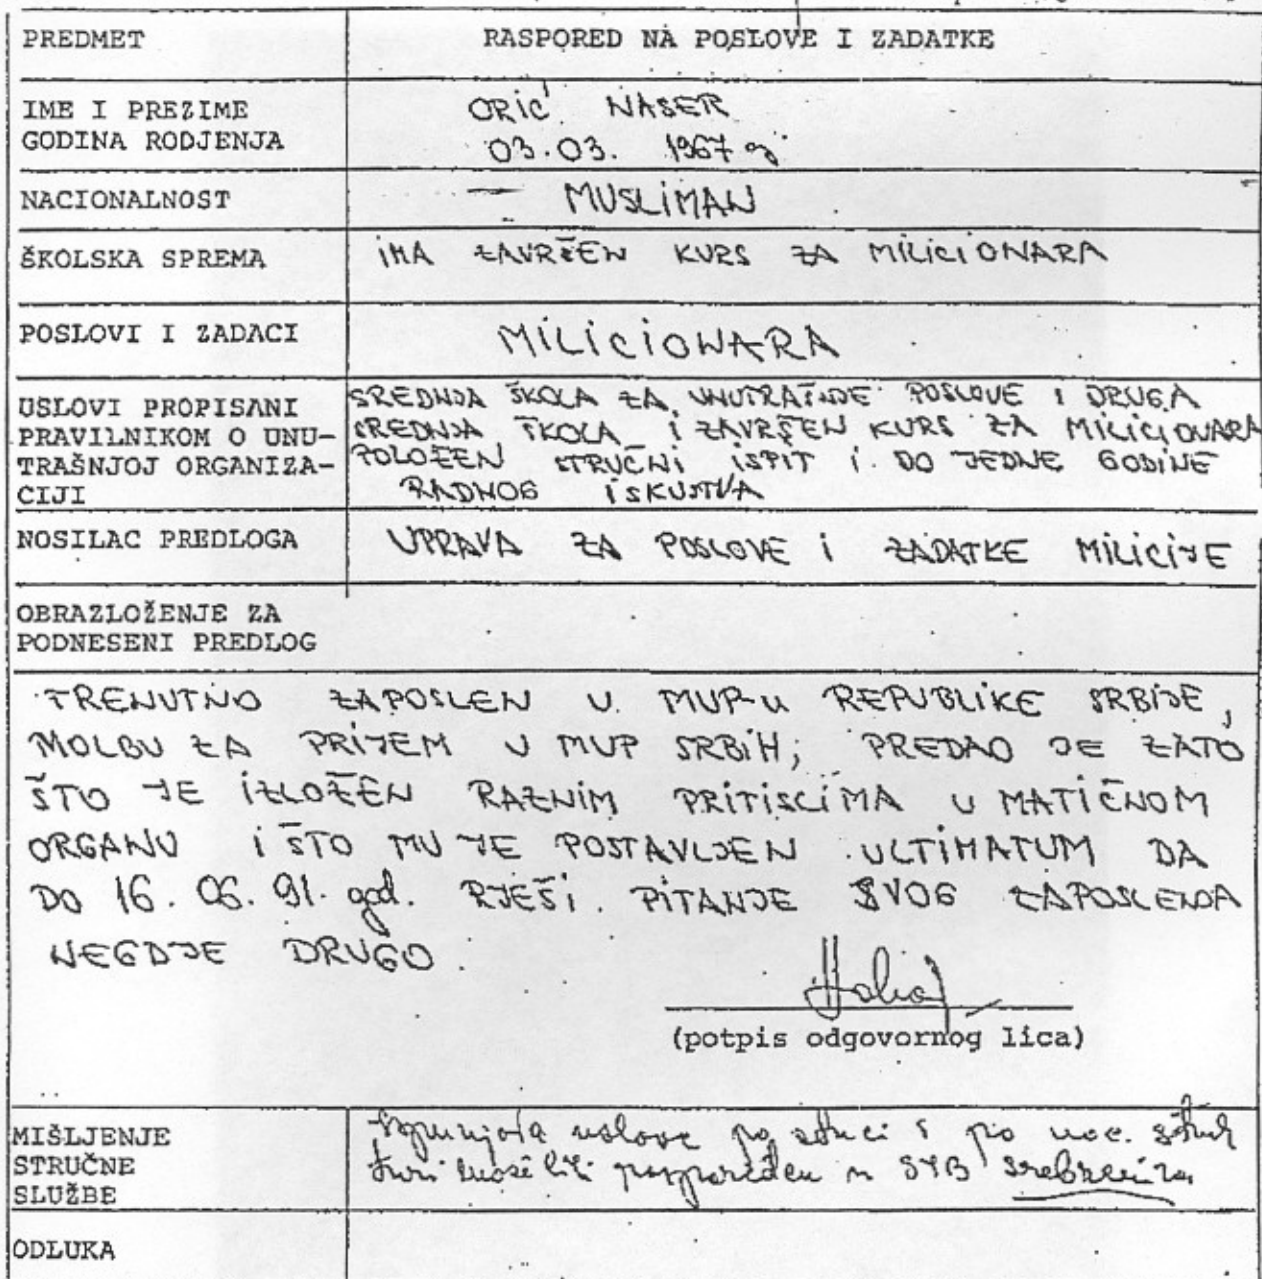 PREDMET RASPORED NA POSLOVE I ZADATKE
IME I PREZIME ORIĆ NASER
GODINA RODJENJA 03.03. 1967 g
NACIONALNOST — MUSLIMAN
ŠKOLSKA SPREMA IMA ZAVRŠEN KURS ZA MILICIONARA
POSLOVI I ZADACI MILICIONARA
USLOVI PROPISANI SREDNJA ŠKOLA ZA UNUTRAŠNJE POSLOVE I DRUGA
PRAVILNIKOM O UNU- SREDNJA ŠKOLA I ZAVRŠEN KURS ZA MILICIONARA
TRAŠNJOJ ORGANIZA- POLOŽEN STRUČNI ISPIT I DO JEDNE GODINE
CIJI RADNOG ISKUSTVA
NOSILAC PREDLOGA UPRAVA ZA POSLOVE I ZADATKE MILICIJE
OBRAZLOŽENJE ZA
PODNESENI PREDLOG
TRENUTNO ZAPOSLEN U MUP-u REPUBLIKE SRBIJE,
MOLBU ZA PRIJEM U MUP SRBIH; PREDAO JE ZATO
ŠTO JE IZLOŽEN RAZNIM PRITISCIMA U MATIČNOM
ORGANU I ŠTO MU JE POSTAVLJEN ULTIMATUM DA
DO 16. 06. 91. god. RJEŠI PITANJE SVOG ZAPOSLENJA
NEGDJE DRUGO.
(potpis odgovornog lica)
MIŠLJENJE uslove po struci i po nac.
STRUČNE može biti u SJB Srebrenica
SLUŽBE
ODLUKA